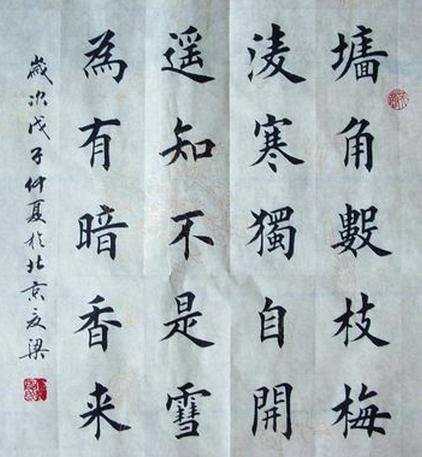 墻角數枝梅
淩寒獨自開
遥知不是雪
為有暗香来
歲次戊子仲夏於北京友梁